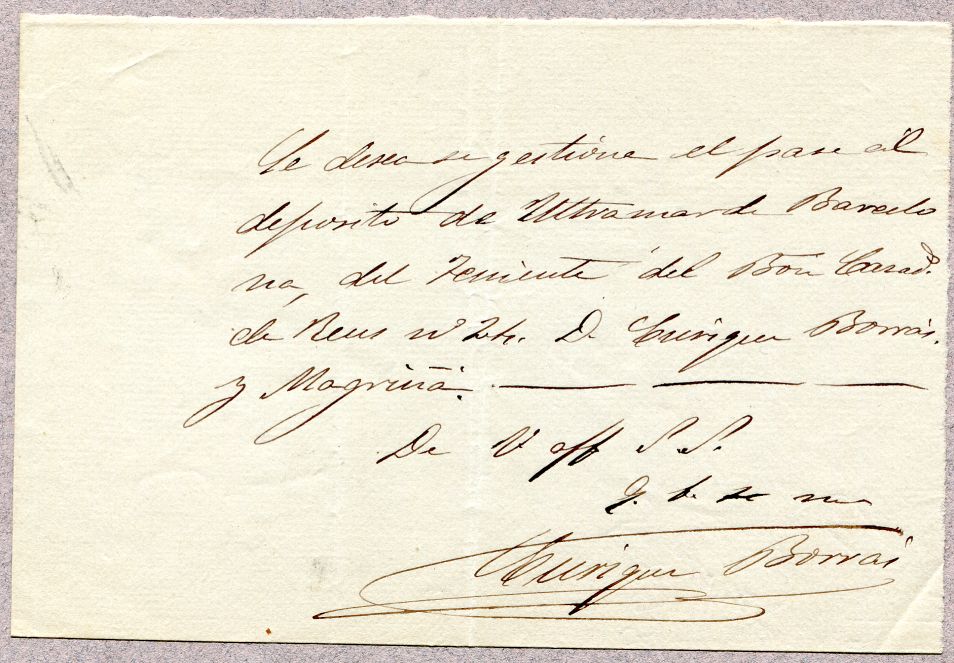 Se desea se gestione el pase al
deposito de Ultramar de Barcelo
na, del Teniente del Bón Casad.
de Reus nº 24. D. Enrique Borrás.
y Magriñá.
De V aff S. S.
q. b. s. m
Enrique Borrás